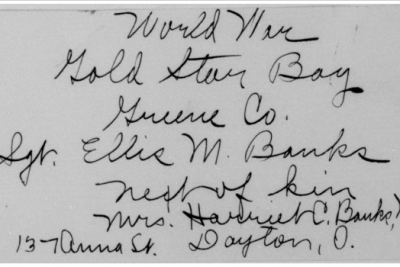 World War
Gold Star Boy
Greene Co.
Sgt. Ellis M. Banks
next of kin
Mrs. Harriet C. Banks,
137 Anna St. Dayton, O.